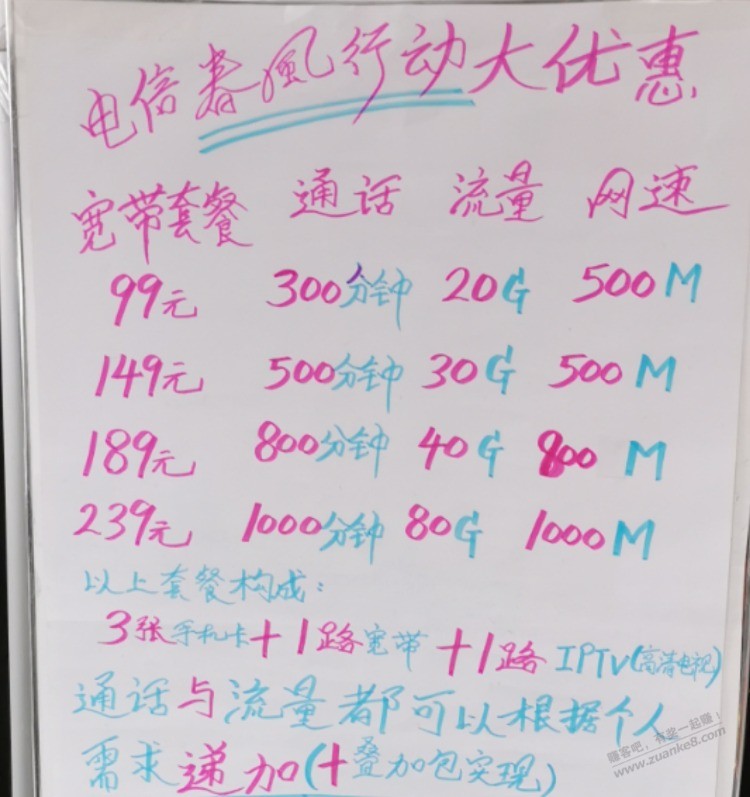 电信春風行动大优惠
宽带套餐 通话 流量 网速
99元 300分钟 20G 500M
149元 500分钟 30G 500M
189元 800分钟 40G 800M
239元 1000分钟 80G 1000M
以上套餐构成:
3张手机卡+1路宽带+1路IPTV(高清电视)
通话与流量都可以根据个人
需求递加(+叠加包实现)
赚客吧,有奖一起赚!
www.zuanke8.com